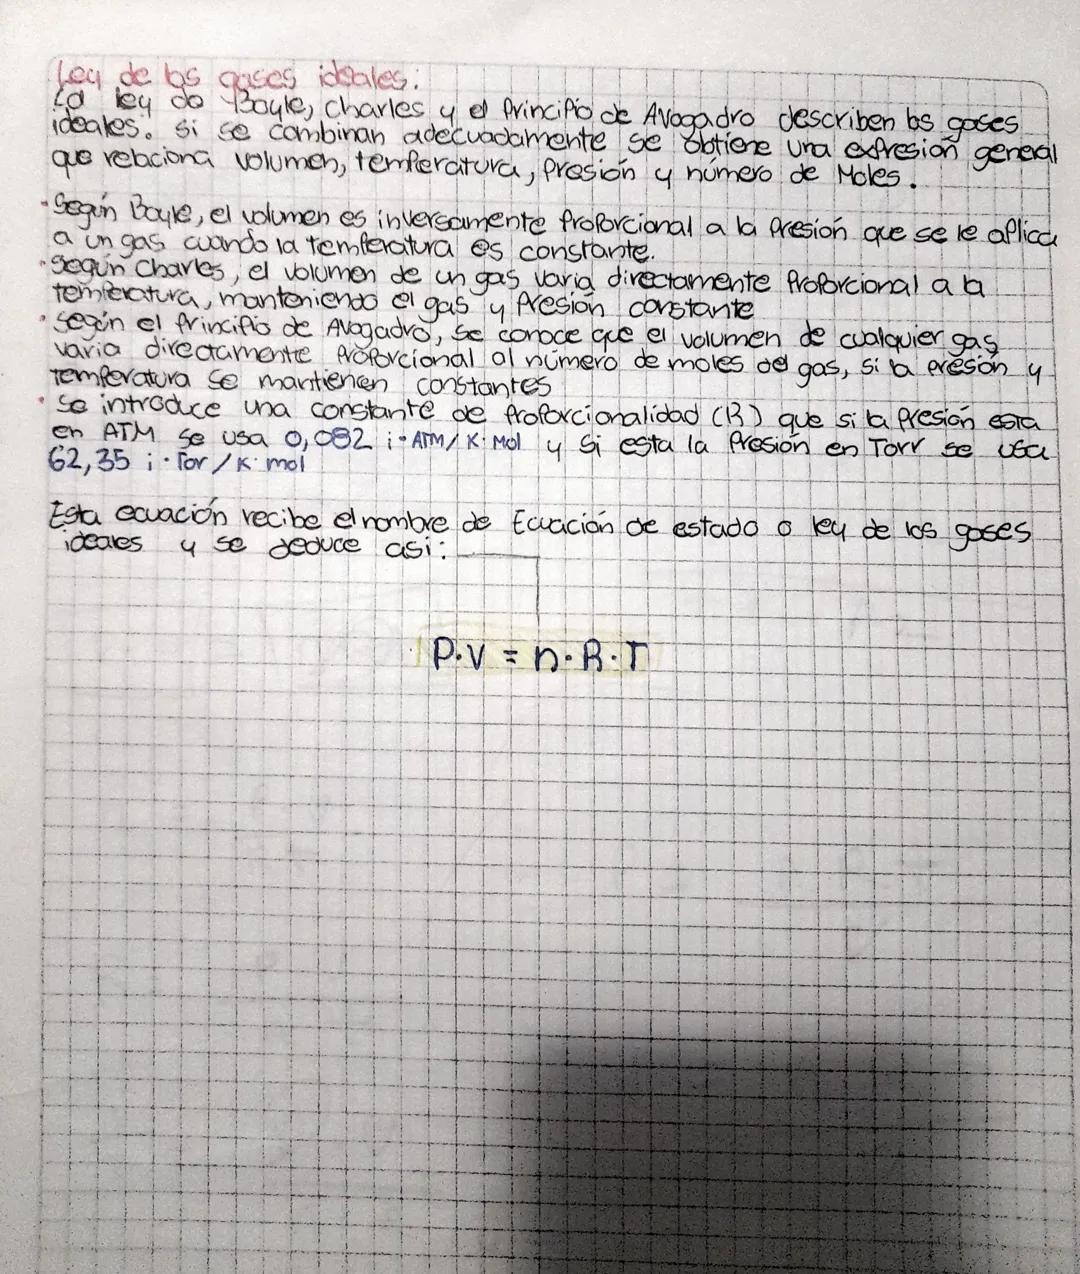 Ley de los gases ideales:
La ley de Boyle, Charles y el Principio de Avogadro describen los gases
ideales. si se combinan adecuadamente se obtiene una expresión general
que relaciona volumen, temperatura, presión y número de Moles.
• Según Boyle, el volumen es inversamente proporcional a la presión que se le aplica
a un gas cuando la temperatura es constante.
• Según Charles, el volumen de un gas varia directamente proporcional a la
temperatura, manteniendo el gas y presión constante
• según el principio de Avogadro, se conoce que el volumen de cualquier gas
varia directamente proporcional al número de moles del gas, si la presión y
temperatura se mantienen constantes
• Se introduce una constante de proporcionalidad (R) que si la presión esta
en ATM se usa 0,082 i • ATM / K • Mol y si esta la presión en Torr se usa
62,35 i • Tor / K • mol
Esta ecuación recibe el nombre de Ecuación de estado o ley de los gases
ideales y se deduce asi:
P•V = n•R•T